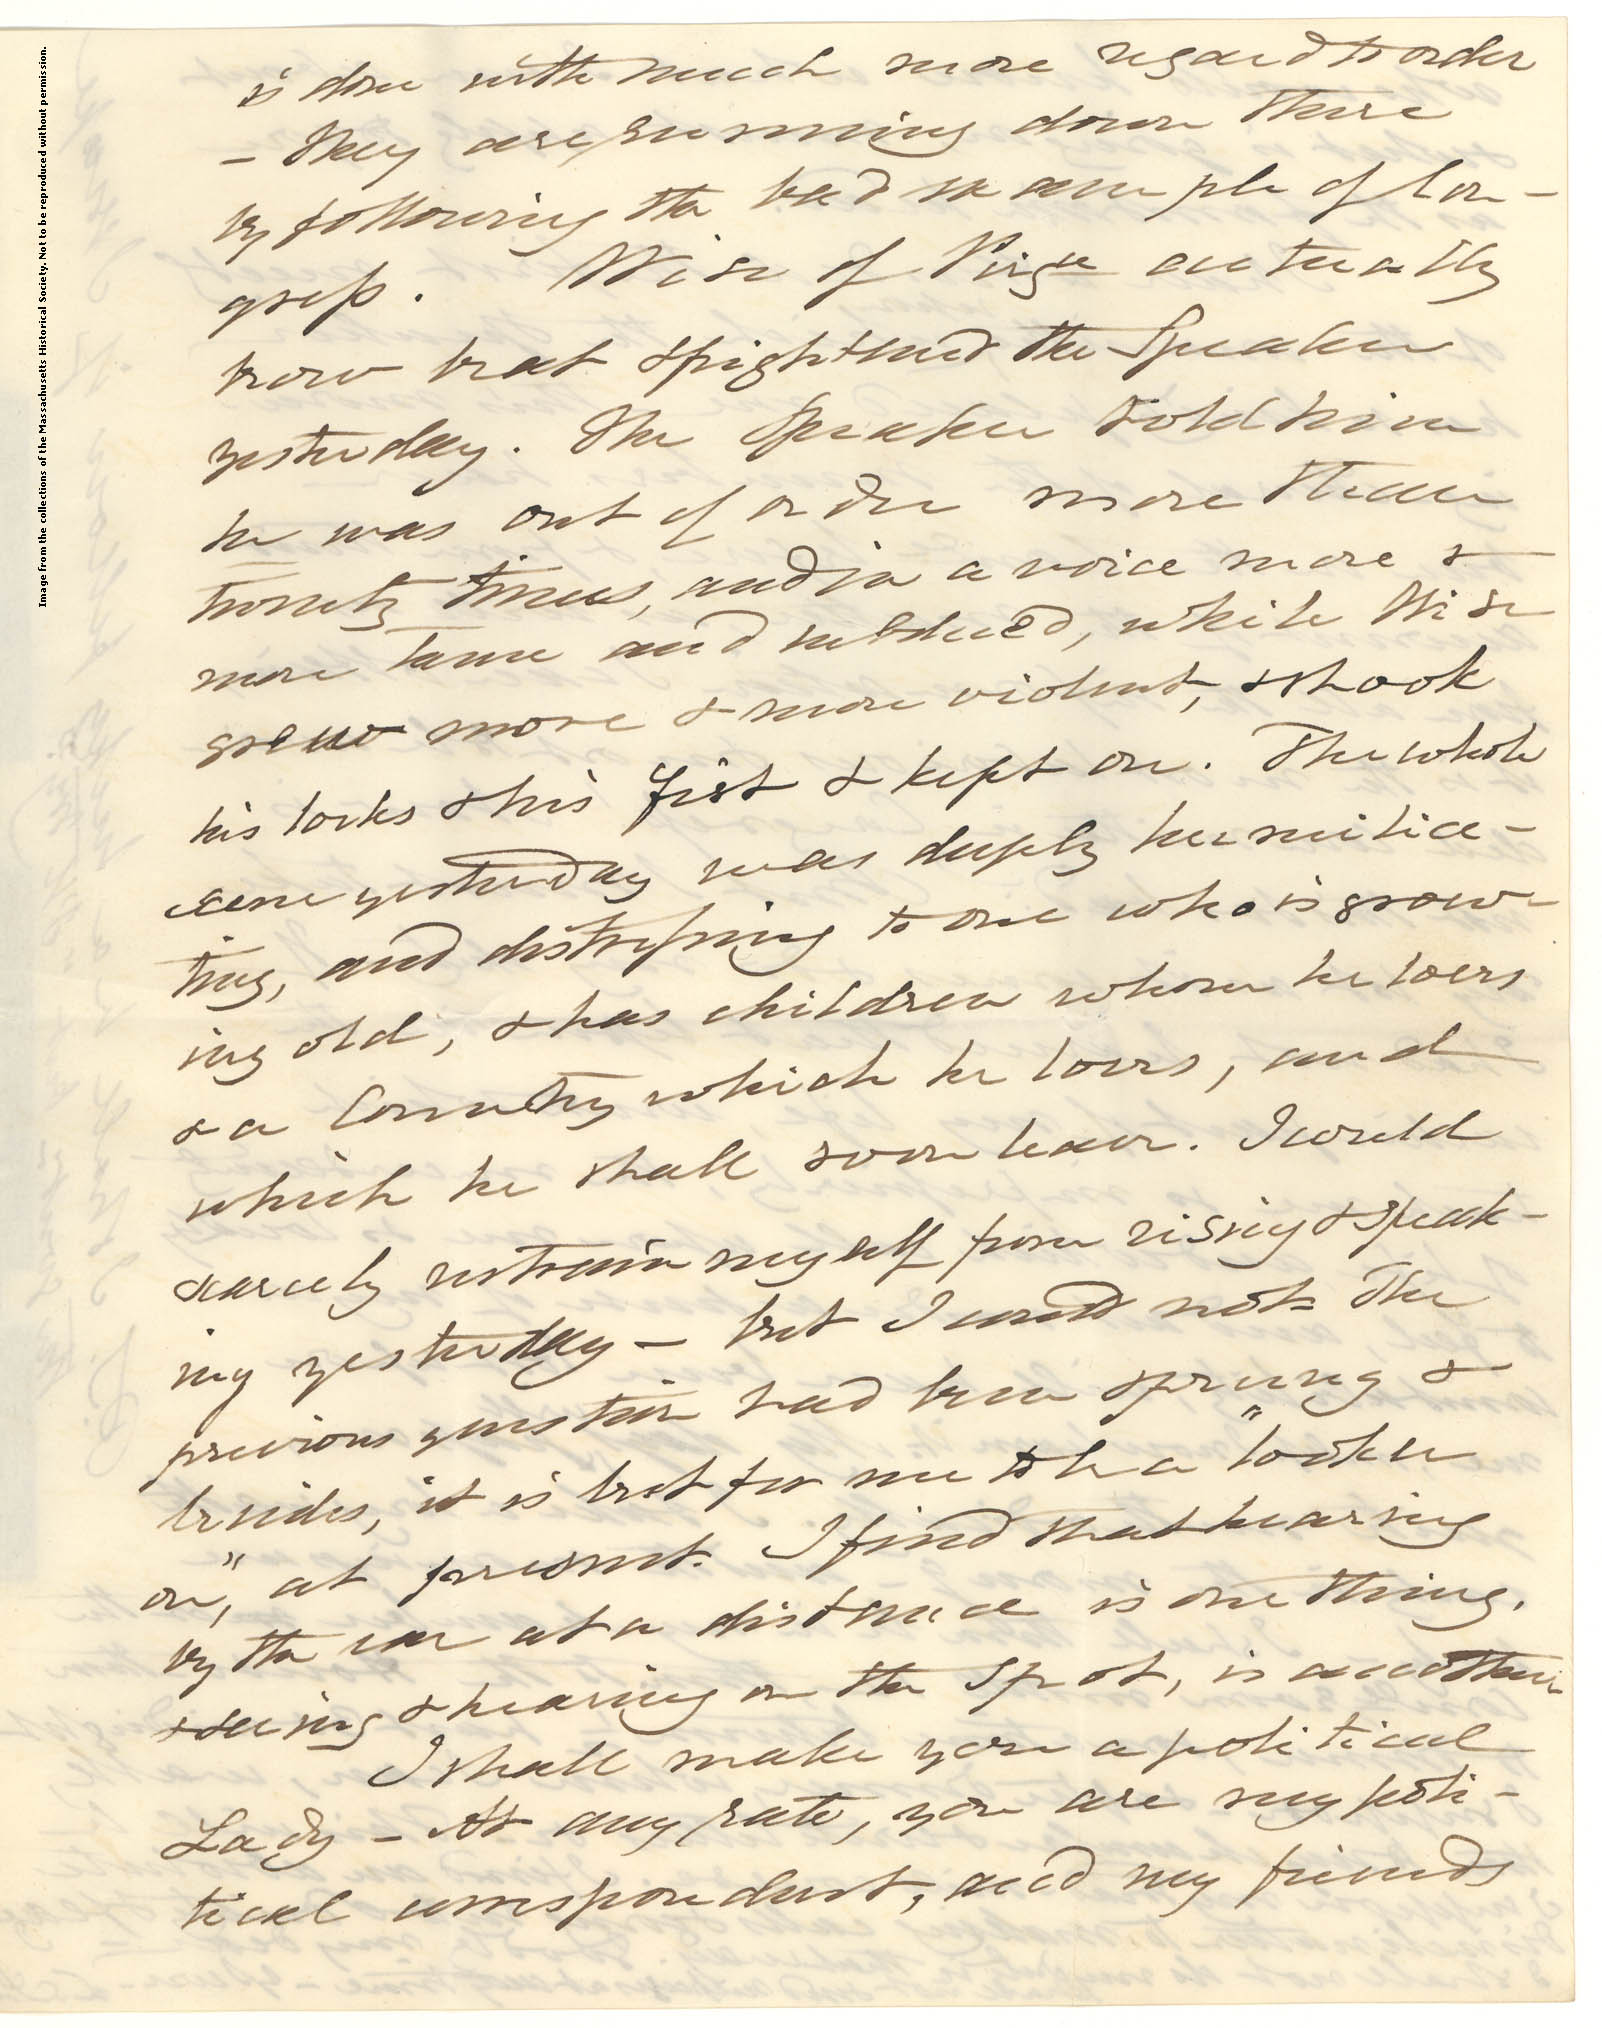 Image from the collections of the Massachusetts Historical Society. Not to be reproduced without permission.
is done with much more regard to order
- They are running down there
by following the bad example of Con-
gress. Wise of Virga actually
brow beat & frightened the Speaker
yesterday. The Speaker told him
he was out of order more than
twenty times, and in a voice more &
more tame and subdued, while Wise
grew more & more violent, & shook
his locks & his fist & kept on. The whole
scene yesterday was deeply humilia-
ting, and distressing to one who is grow-
ing old, & has children whom he loves
& a Country which he loves, and
which he shall soon leave. I could
scarcely restrain myself from rising & speak-
ing yesterday - but I could not. The
previous question had been sprung &
besides, it is best for me to be a "looker
on", at present. I find that hearing
by the ear at a distance is one thing,
& seeing & hearing on the spot, is another.
I shall make you a political
Lady - At any rate, you are my poli-
tical correspondent, and my friends